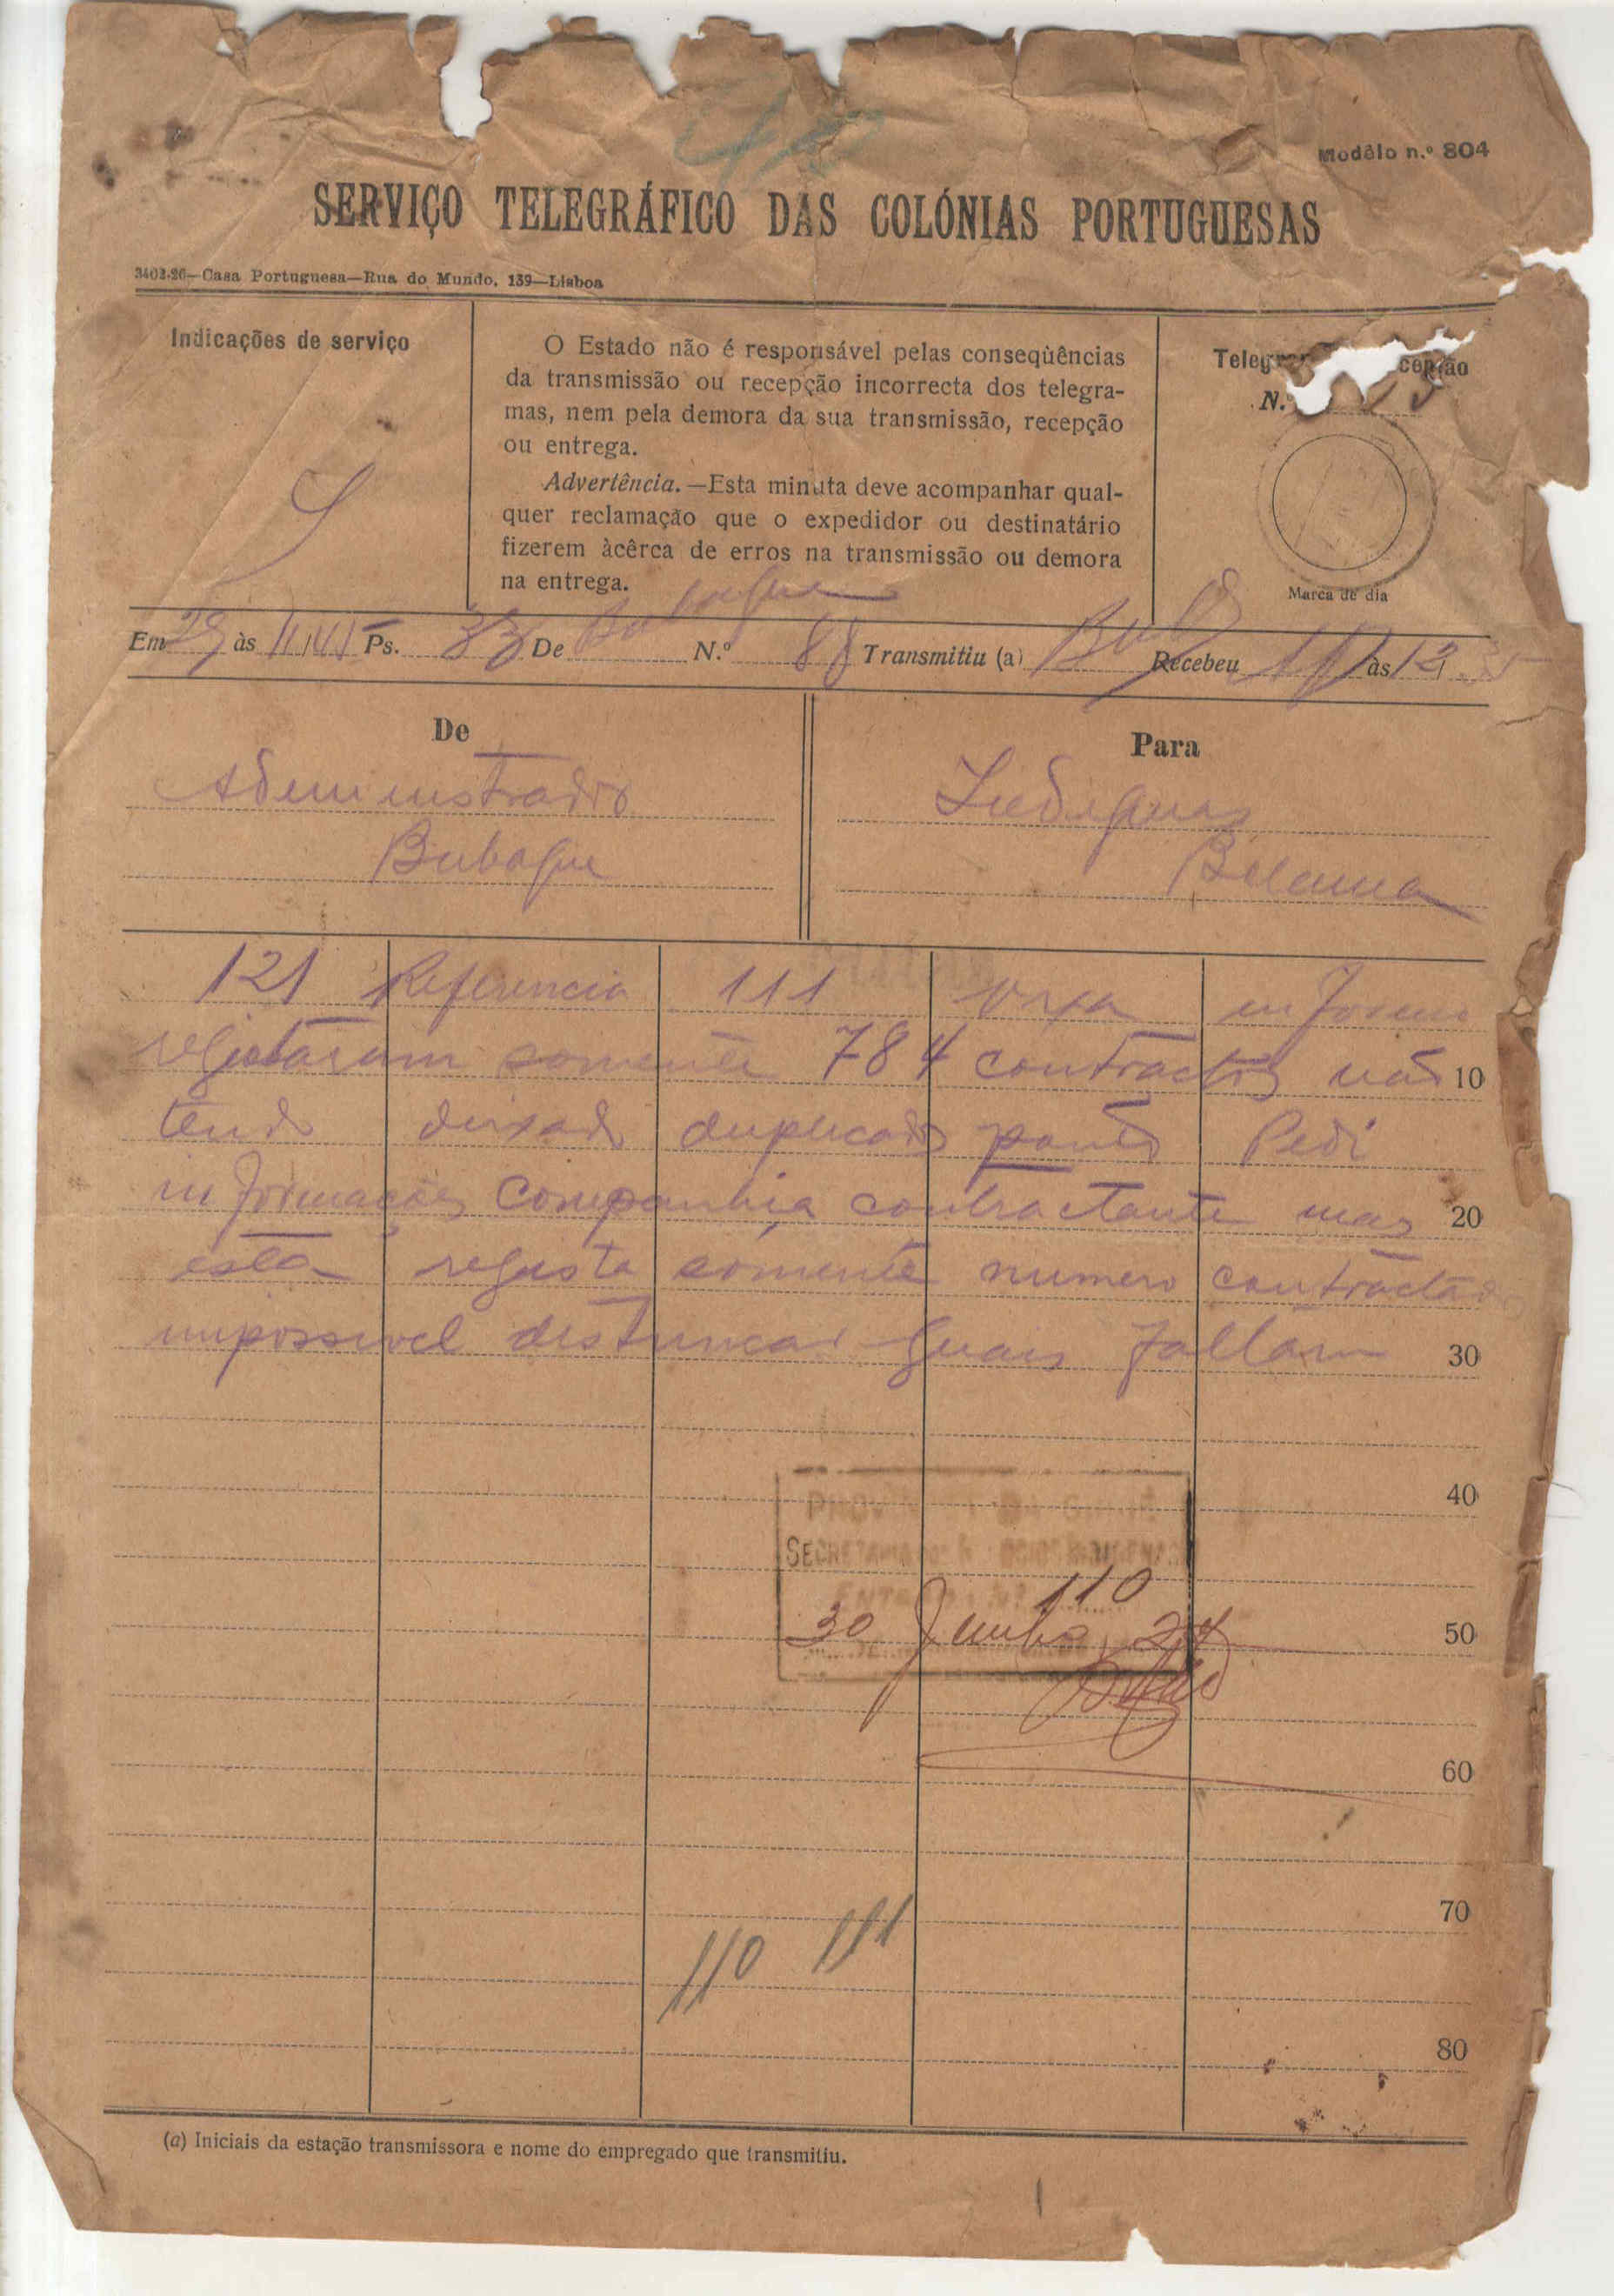 Modêlo n.º 804
SERVIÇO TELEGRÁFICO DAS COLÓNIAS PORTUGUESAS
3402-26—Casa Portuguesa—Rua do Mundo, 139—Lisboa
Indicações de serviço
S
O Estado não é responsável pelas conseqùências
da transmissão ou recepção incorrecta dos telegra-
mas, nem pela demora da sua transmissão, recepção
ou entrega.
Advertência.—Esta minuta deve acompanhar qual-
quer reclamação que o expedidor ou destinatário
fizerem àcêrca de erros na transmissão ou demora
na entrega.
N.º
Marca de dia
Em 29 às Ps. 33 De Bubaque N.º 88 Transmitiu (a) Bub Recebeu às 12.35
De
Administrador
Bubaque
Para
Bolama
121 Referencia 111 informo
registaram somente 784 contractos não
10
tendo deixado duplicado Pedi
informações Companhia contractante mas
20
esta regista somente numero contractados
impossivel destrinçar quais faltam
30
40
SECRETARIA
110
30 Junho 27
50
60
70
110 111
80
(a) Iniciais da estação transmissora e nome do empregado que transmitiu.